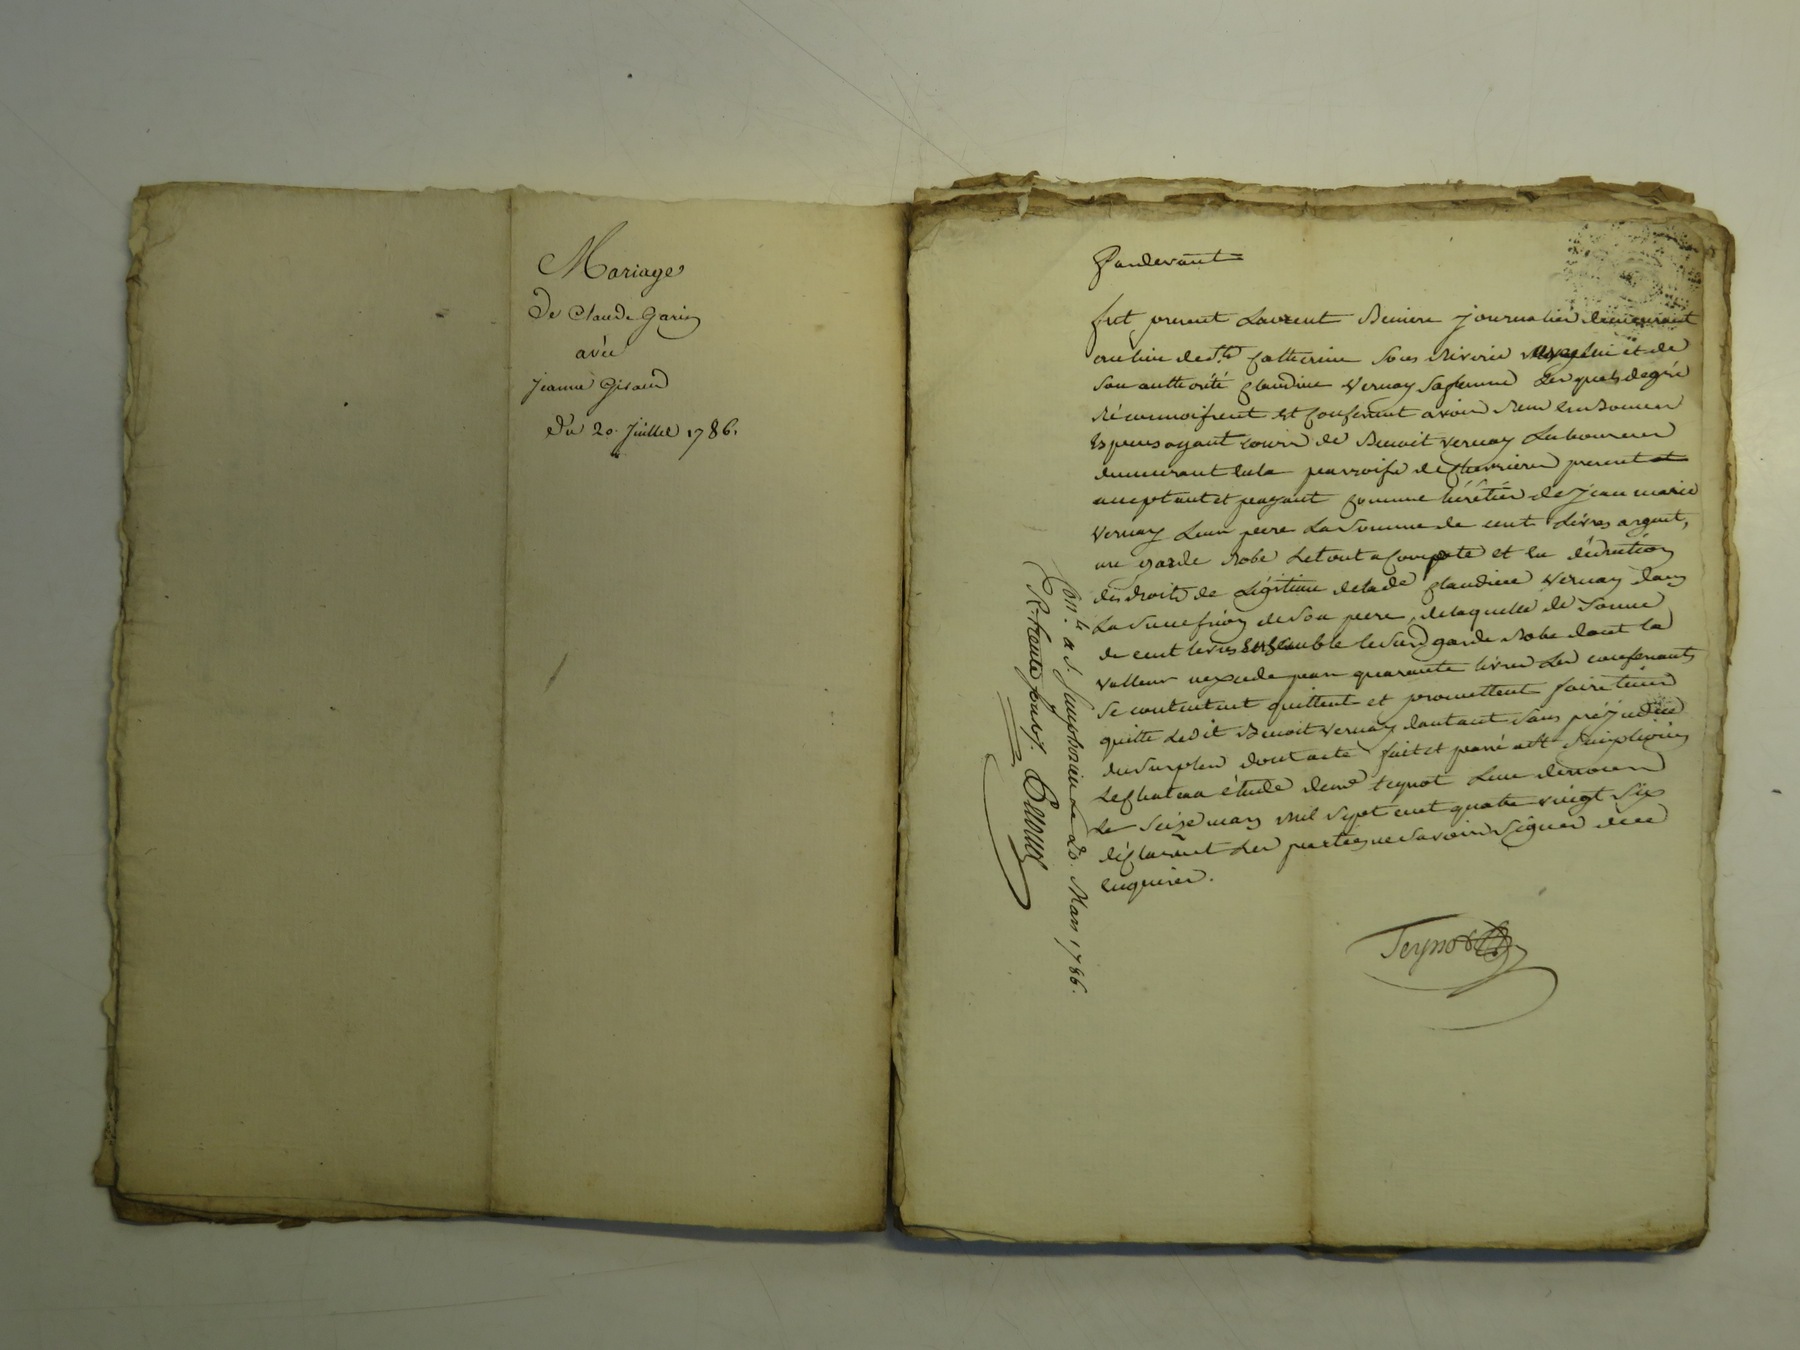 Mariage
De Claude Garin
avec
jeanne Giraud
Du 20. Juillet 1786.
Pardevant
fut present Laurent Beniere journalier demeurant
au lieu de Ste Catherine sous Riverie et de
son authorité Claudine Vernay sa femme Lesquels de gré
reconnoissent et confessent avoir reçu en
especes ayant cours de Benoit Vernay Laboureur
demeurant en la parroisse de Chevrieres present et
acceptant et payant comme héritier de jean marie
Vernay Leur pere La somme de cent Livres argent,
une garde robe Le tout a compte et en déduction
des droits de Légitime de lade Claudine Vernay dans
La succession de son pere, de laquelle de somme
de cent livres ensemble le surd garde robe dont la
valleur nexcede pas quarante livres Les confessants
se contentent quittent et promettent faire tenir
quitte Ledit Benoit Vernay dautant sans préjudice
du surplus dont acte fait et passé a St simphorien
Le Chateau étude de me teynot Lun des
Le seize mars mil sept cent quatre vingt six
déclarent Les parties ne savoir signer de ce
enquises.
Teynot
Con.lé a S. Simphorien Le 20. Mars 1786.
R. trente sous.